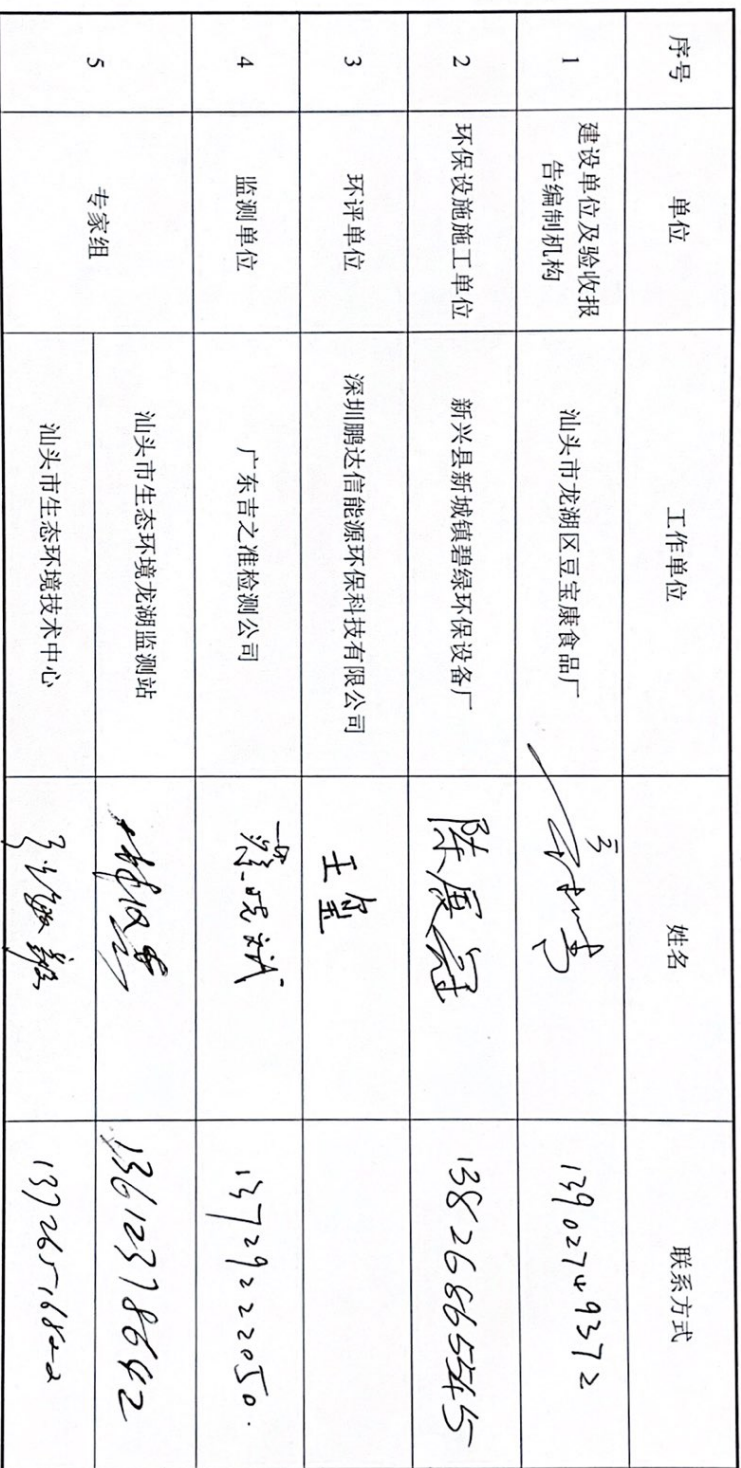 序号 单位 工作单位 姓名 联系方式
1 建设单位及验收报告编制机构 汕头市龙湖区豆宝康食品厂 13902749372
2 环保设施施工单位 新兴县新城镇碧绿环保设备厂 陈庆冠 13826865545
3 环评单位 深圳鹏达信能源环保科技有限公司 王玺
4 监测单位 广东吉之准检测公司 蔡晓斌 13729222050.
5 专家组 汕头市生态环境龙湖监测站
汕头市生态环境技术中心